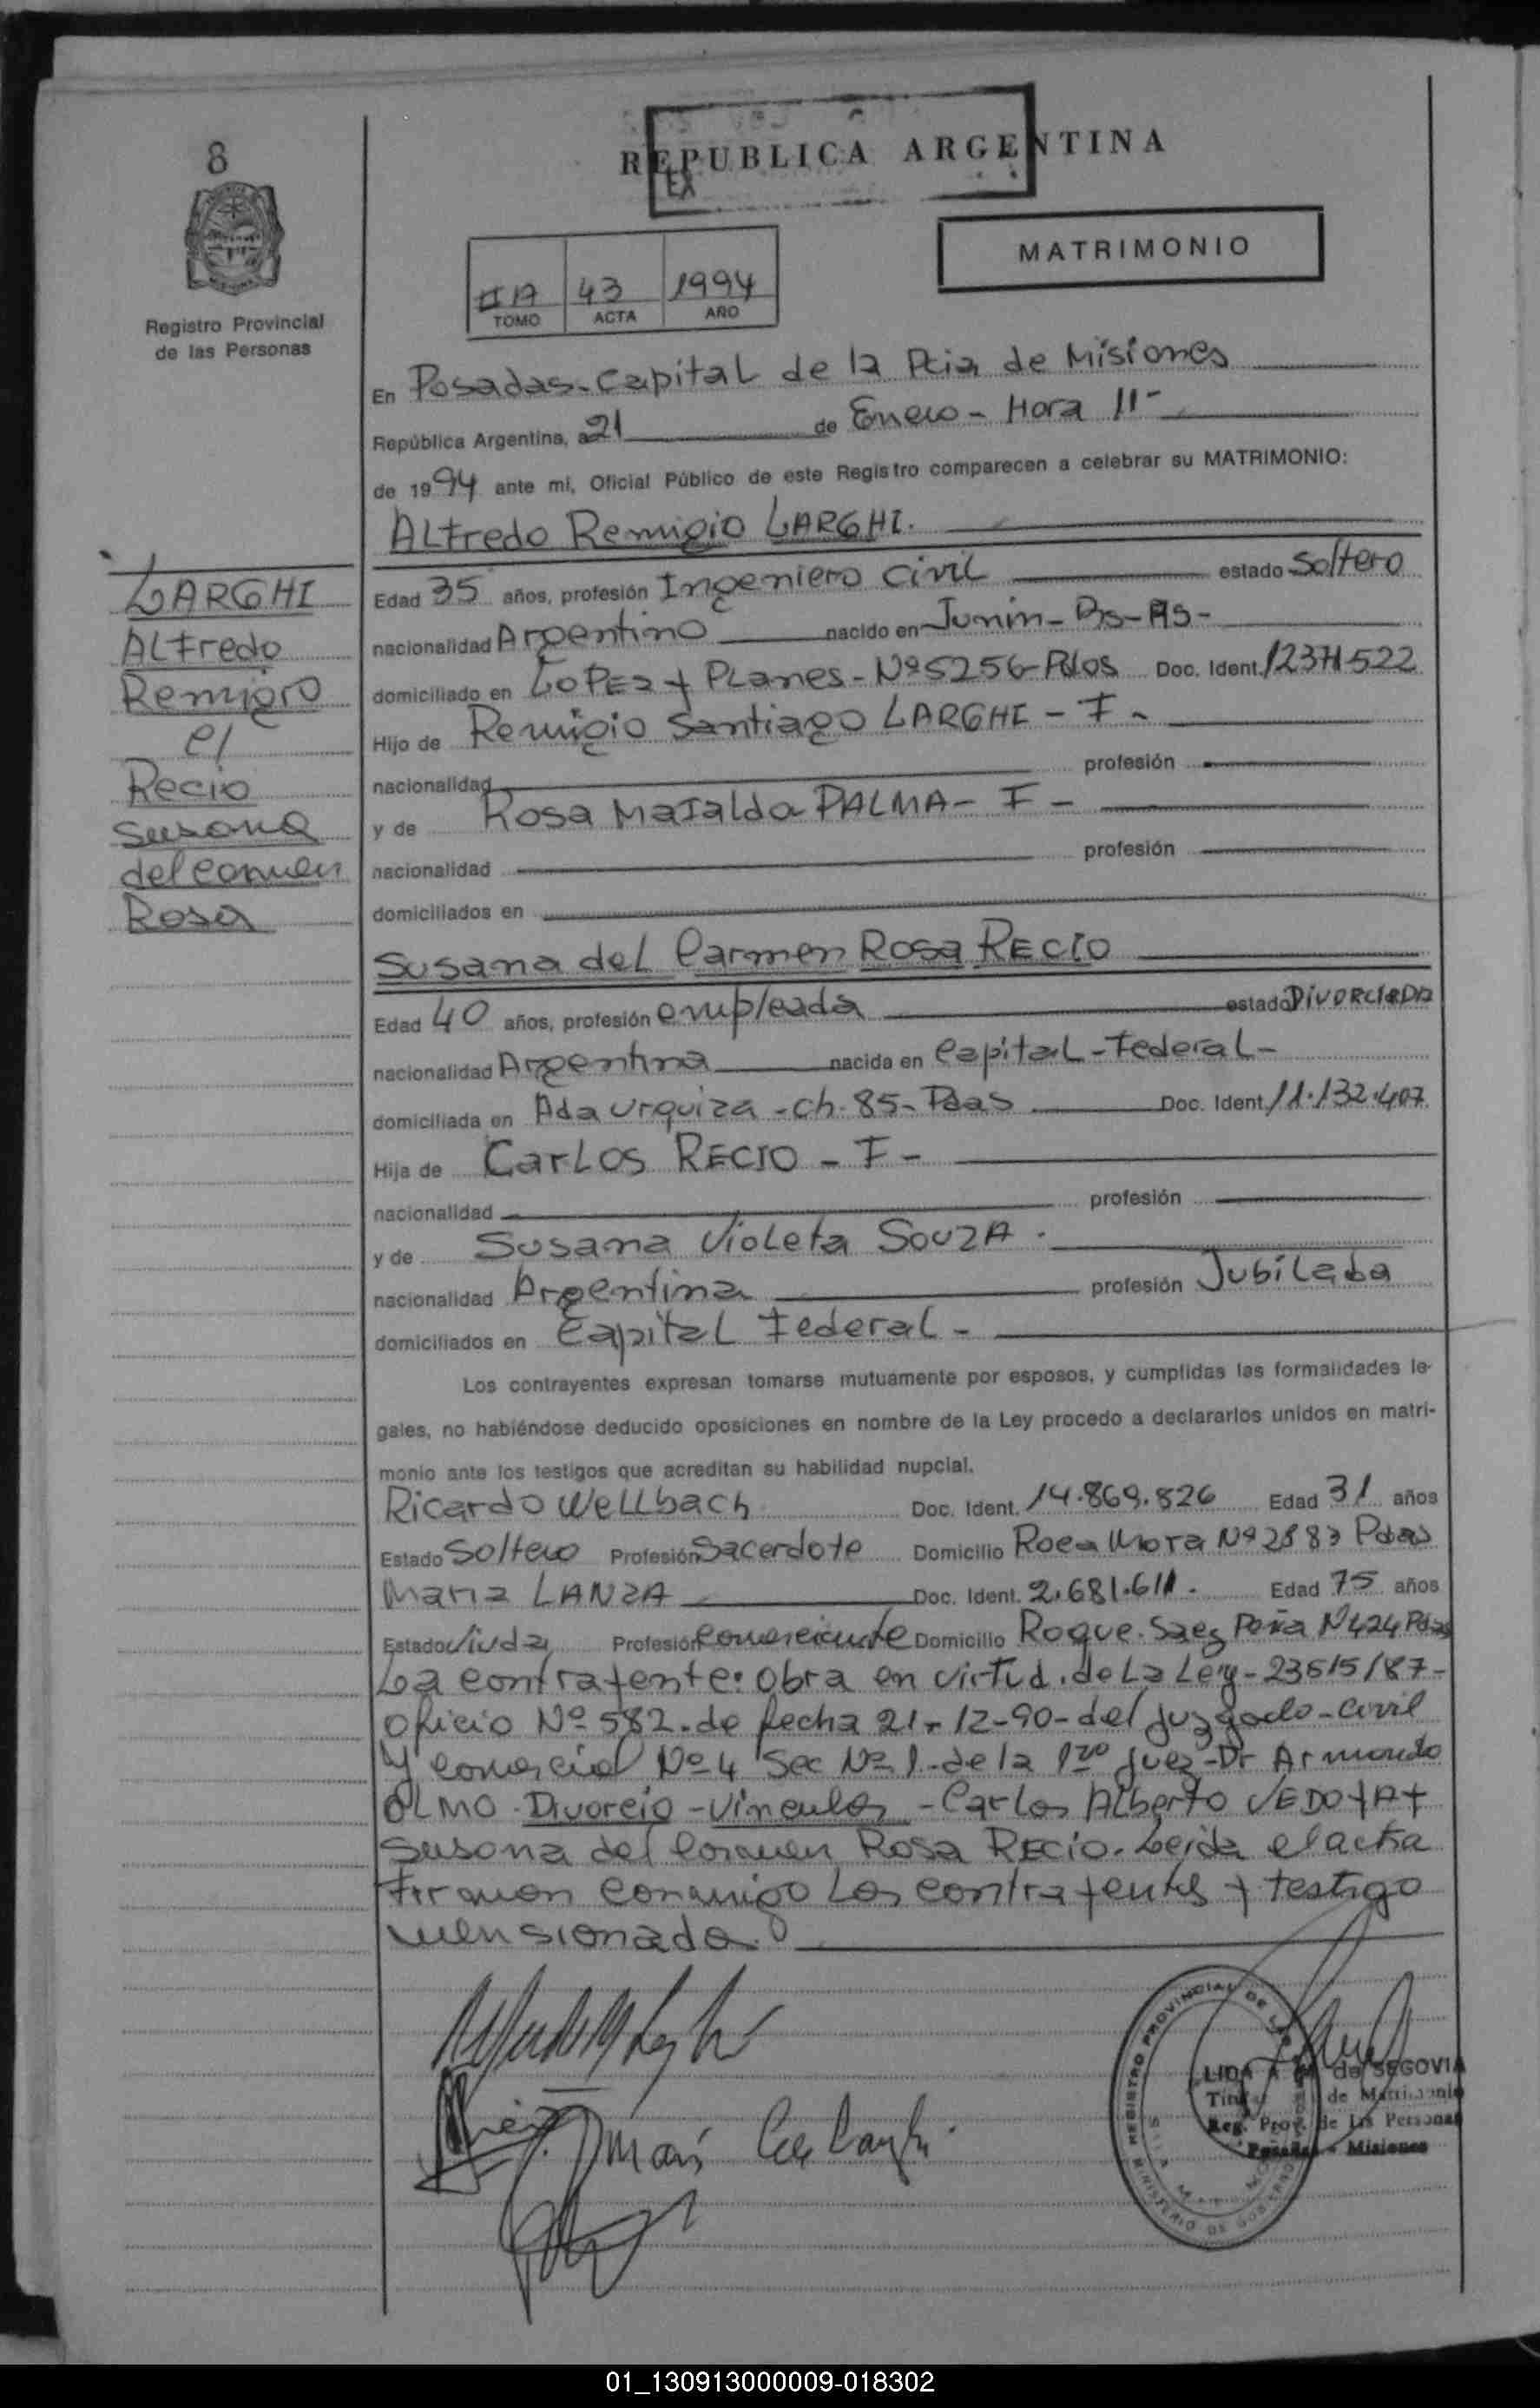 8
REPUBLICA ARGENTINA
EX
MATRIMONIO
IIA 43 1994
TOMO ACTA AÑO
Registro Provincial
de las Personas
En Posadas-Capital de la Pcia de Misiones
República Argentina, a 21 de Enero - Hora 11-
de 1994 ante mi, Oficial Público de este Registro comparecen a celebrar su MATRIMONIO:
ALfredo Remigio LARGHI.
LARGHI
ALfredo
Remigio
c/
Recio
Susana
del Carmen
Rosa
Edad 35 años, profesión Ingeniero civil estado Soltero
nacionalidad Argentino nacido en Junín-Bs-As-
domiciliado en LoPEz y PLanes-Nº5256-Pdas Doc. Ident. 12371522
Hijo de Remigio Santiago LARGHI - F -
nacionalidad profesión
y de Rosa MaFalda PALMA- F -
nacionalidad profesión
domiciliados en
Susana deL Carmen Rosa RECIO
Edad 40 años, profesión empleada estado DiVORCIADA
nacionalidad Argentina nacida en CapitaL-FederaL-
domiciliada en Ada Urquiza -ch-85-Pdas Doc. Ident. 11.132.407
Hija de CarLos RECIO - F -
nacionalidad profesión
y de Susana VioLeta SouzA.
nacionalidad Argentina profesión JubiLada
domiciliados en CapitaL FederaL -
Los contrayentes expresan tomarse mutuamente por esposos, y cumplidas las formalidades le-
gales, no habiéndose deducido oposiciones en nombre de la Ley procedo a declararlos unidos en matri-
monio ante los testigos que acreditan su habilidad nupcial.
Ricardo WeLLbach Doc. Ident. 14.869.826 Edad 31 años
Estado Soltero Profesión Sacerdote Domicilio Roca Mora Nº 2883 Pdas
Maria LANZA Doc. Ident. 2.681.611. Edad 75 años
Estado Viuda Profesión comerciante Domicilio Roque Saez Peña N424 Pdas
La contrayente: obra en virtud de La Ley-23515/87-
Oficio Nº 582-de fecha 21-12-90-del juzgado-civil
y comercial Nº4 Sec Nº1-de la 1ra juez-Dr Armando
OLMO-Divorcio-Vincular-Carlos ALberto VEDOYA y
Susana del Carmen Rosa RECIO. Leida el acta
Firman conmigo Los contrayentes y testigo
mensionado.
REGISTRO PROVINCIAL DE LAS PERSONAS
MINISTERIO DE GOBIERNO
LIDA A de SEGOVIA
de Matrimonio
Reg. Prov. de las Personas
Posadas - Misiones
01_130913000009-018302